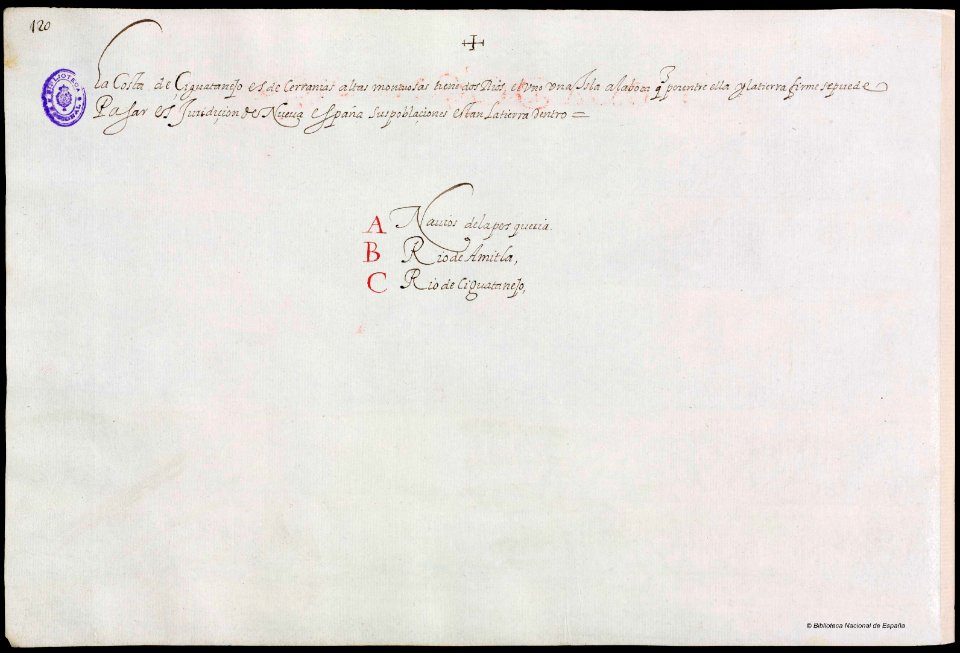 120
La Costa de Çiguatanejo es de serranias altas montuosas tiene dos Rios, el uno una Isla a la boca q̃ por entre ella y la tierra firme se puede
Pasar es Juridiçion de Nueva españa sus poblaciones estan la tierra dentro =
BIBLIOTECA NACIONAL
A Navios de la perqueria.
B Rio de Amitla,
C Rio de Ciguatanejo,
© Biblioteca Nacional de España